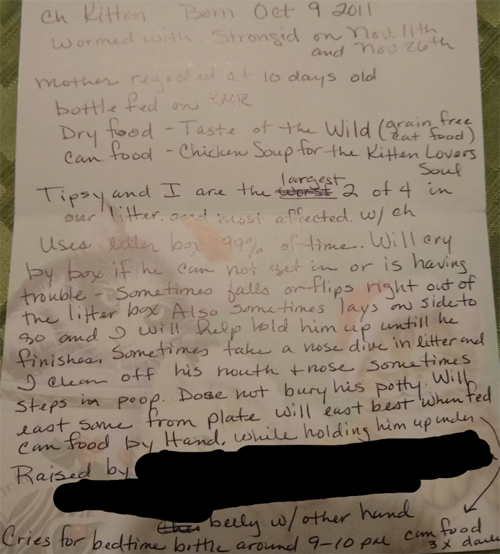 ch Kitten Born Oct 9 2011
Wormed with Strongid on Nov. 11th
and Nov 26th
mother rejected at 10 days old
bottle fed on KMR
Dry food - Taste of the Wild (grain free
cat food)
can food - Chicken Soup for the Kitten Lovers
Soul
largest
Tipsy and I are the worst 2 of 4 in
our litter. and most affected. w/ ch
Uses litter box 99% of time. Will cry
by box if he can not get in or is having
trouble - Sometimes falls or flips right out of
the litter box Also Sometimes lays on side to
go and I will help hold him up untill he
finishes. Sometimes take a nose dive in litter and
I clean off his mouth + nose sometimes
steps in poop. Dose not bury his potty. Will
east some from plate will east best when fed
can food by Hand, while holding him up under
Raised by
belly w/ other hand
Cries for bedtime bottle around 9-10 pm can food
3x